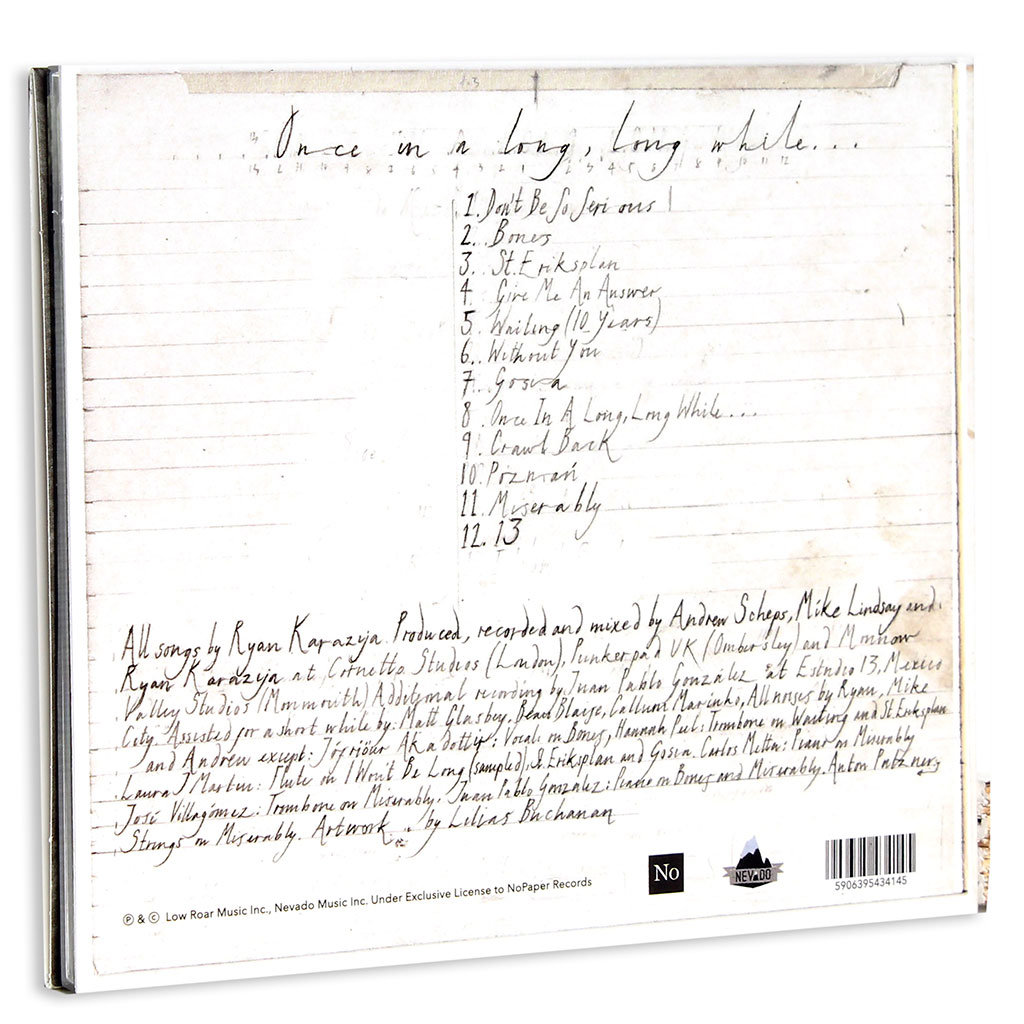 Once in a long, long while...
1. Don't Be So Serious
2. Bones
3. St. Eriksplan
4. Give Me An Answer
5. Waiting (10 Years)
6. Without You
7. Gosia
8. Once In A Long, Long While...
9. Crawl Back
10. Poznań
11. Miserably
12. 13
All songs by Ryan Karazija. Produced, recorded and mixed by Andrew Scheps, Mike Lindsay and
Ryan Karazija at Cornetto Studios (London), Punkerpad UK (Ombersley) and Monnow
Valley Studios (Monmouth) Additional recording by Juan Pablo González at Estudio 13, Mexico
City. Assisted for a short while by: Matt Glasbey, Beau Blaise, Callum Marinho, All noises by Ryan, Mike
and Andrew except: Jófríður Akadóttir: Vocals on Bones, Hannah Peel: Trombone on Waiting and St Eriksplan
Laura J Martin: Flute on I Won't Be Long (sampled), St Eriksplan and Gosia. Carlos Metta: Piano on Miserably
José Villagómez: Trombone on Miserably. Juan Pablo González: Piano on Bones and Miserably. Anton Patzner:
Strings on Miserably. Artwork by Lilias Buchanan
No
NEVADO
5906395434145
Ⓟ & © Low Roar Music Inc., Nevado Music Inc. Under Exclusive License to NoPaper Records